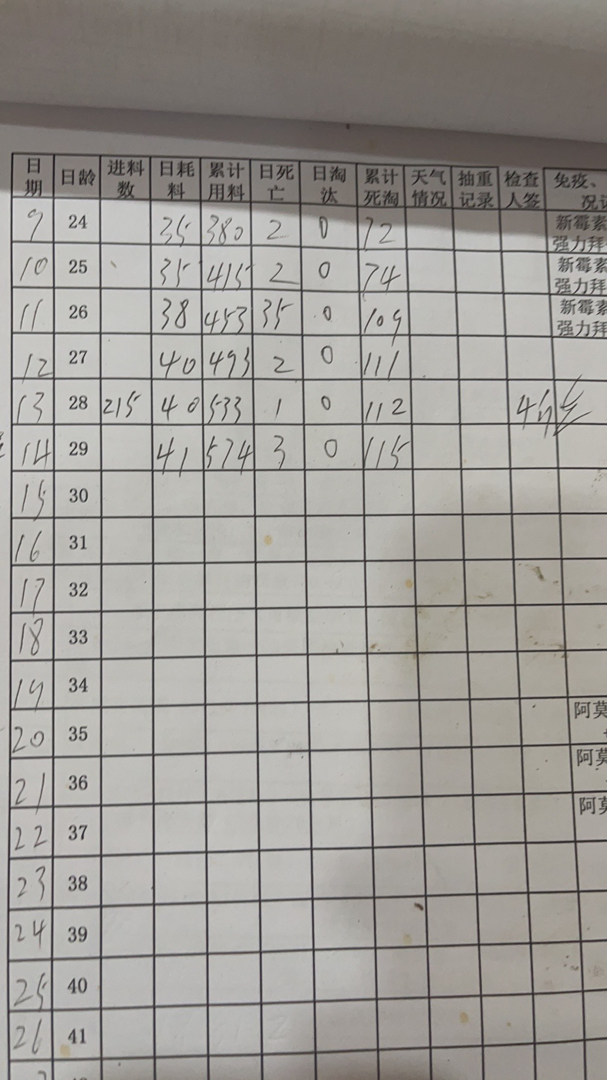 日期 日龄 进料数 日耗料 累计用料 日死亡 日淘汰 累计死淘 天气情况 抽重记录 检查人签 免疫、
9 24 35 380 2 0 72 新霉素
强力拜
10 25 35 415 2 0 74 新霉素
强力拜
11 26 38 453 35 0 109 新霉素
强力拜
12 27 40 493 2 0 111
13 28 215 40 533 1 0 112
14 29 41 574 3 0 115
15 30
16 31
17 32
18 33
19 34
20 35 阿莫
21 36 阿莫
22 37 阿莫
23 38
24 39
25 40
26 41